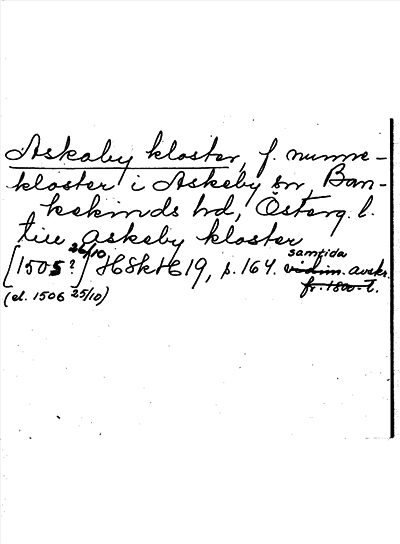 Askaby kloster, f. nunne-
kloster i Askeby sn, Ban-
kekinds hd, Österg. l.
till askeby kloster
[1505? 26/10] HSkH 19, s. 164. samtida vidim. avskr. fr. 1800-t.
(el. 1506 25/10)